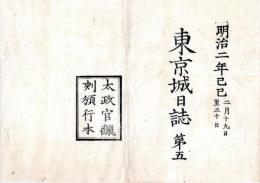 明治二年己巳 二月十九日
至三十日
東京城日誌 第五
太政官
刻頒行本